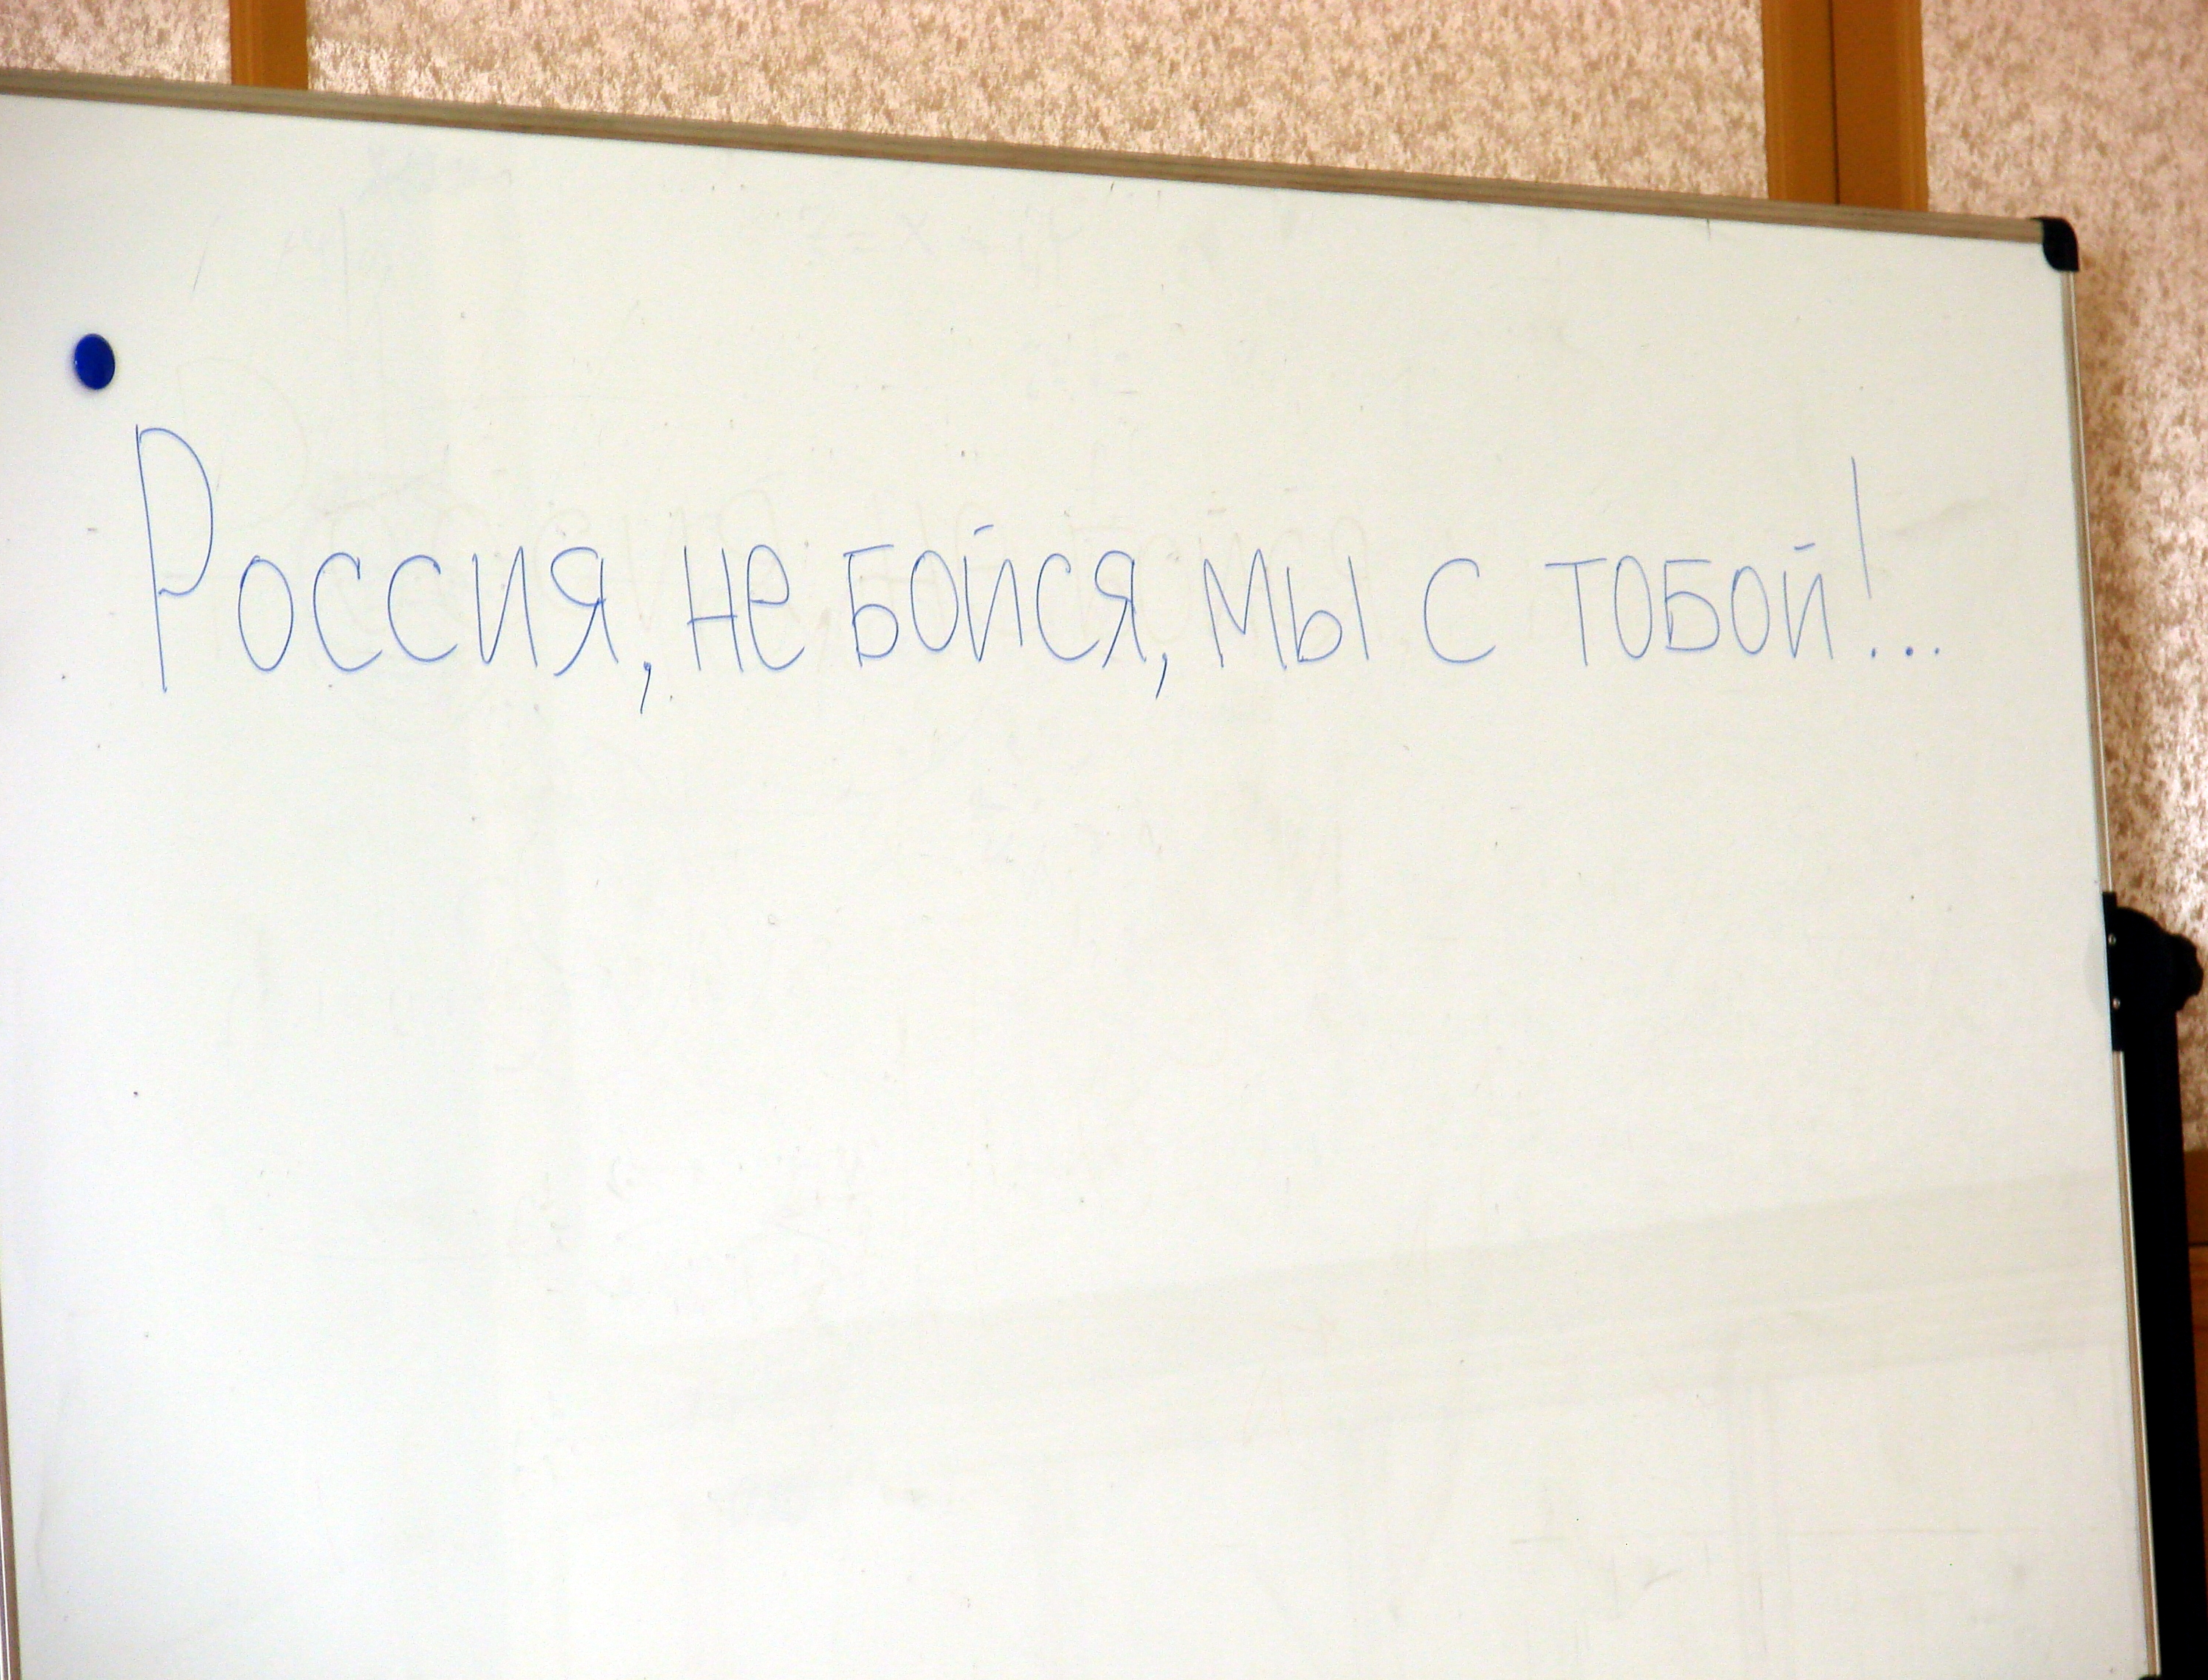 Россия, не бойся, мы с тобой!...